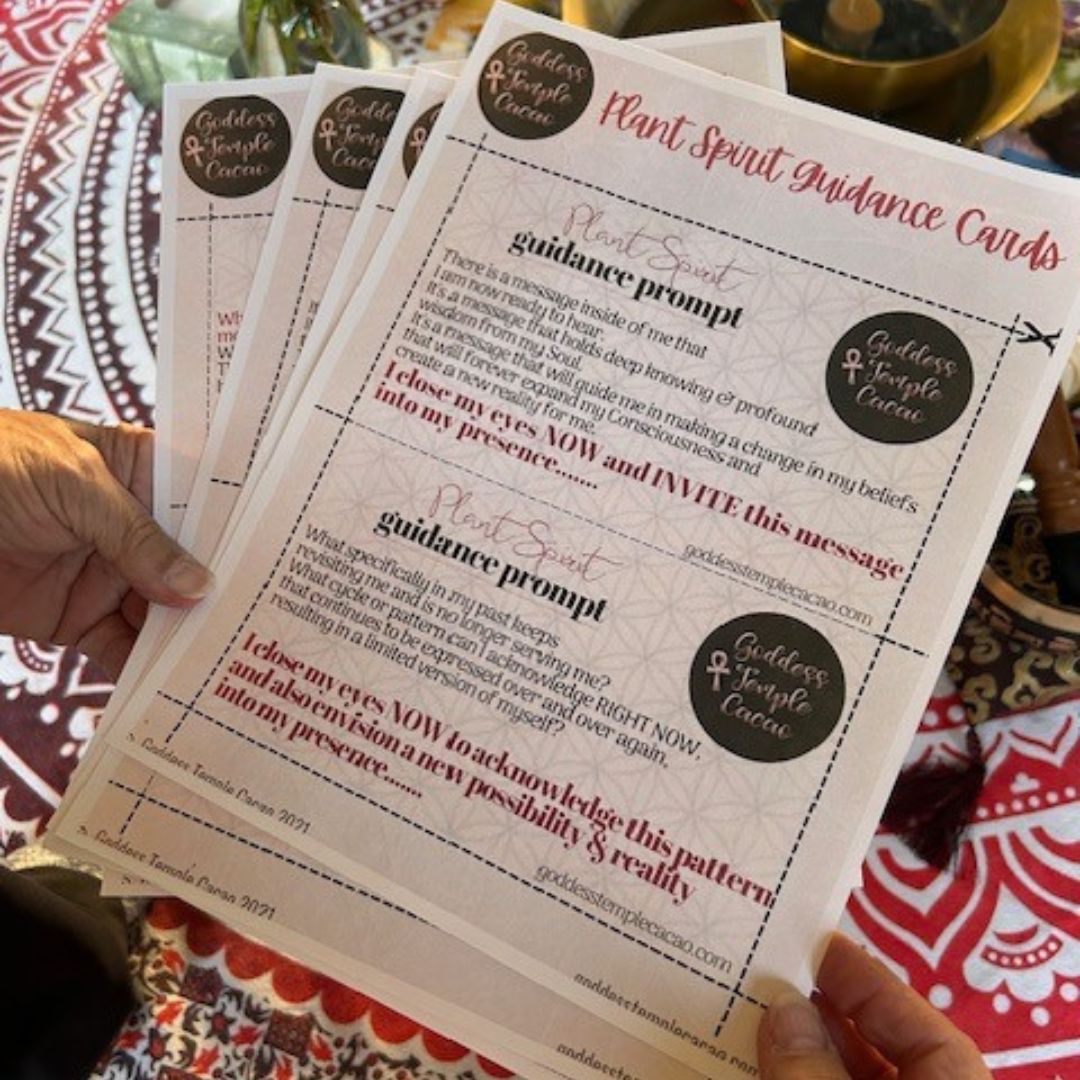 Goddess
Temple
Cacao
Goddess
Temple
Cacao
Goddess
Temple
Cacao
Plant Spirit Guidance Cards
Plant Spirit
guidance prompt
There is a message inside of me that
I am now ready to hear.
It's a message that holds deep knowing & profound
wisdom from my Soul.
It's a message that will guide me in making a change in my beliefs
that will forever expand my Consciousness and
create a new reality for me...
I close my eyes NOW and INVITE this message
into my presence.......
goddesstemplecacao.com
Goddess
Temple
Cacao
Plant Spirit
guidance prompt
What specifically in my past keeps
revisiting me and is no longer serving me?
What cycle or pattern can I acknowledge RIGHT NOW,
that continues to be expressed over and over again,
resulting in a limited version of myself?
I close my eyes NOW to acknowledge this pattern
and also envision a new possibility & reality
into my presence.......
goddesstemplecacao.com
Goddess
Temple
Cacao
Goddess Temple Cacao 2021
goddesstemplecacao.com
Goddess Temple Cacao 2021